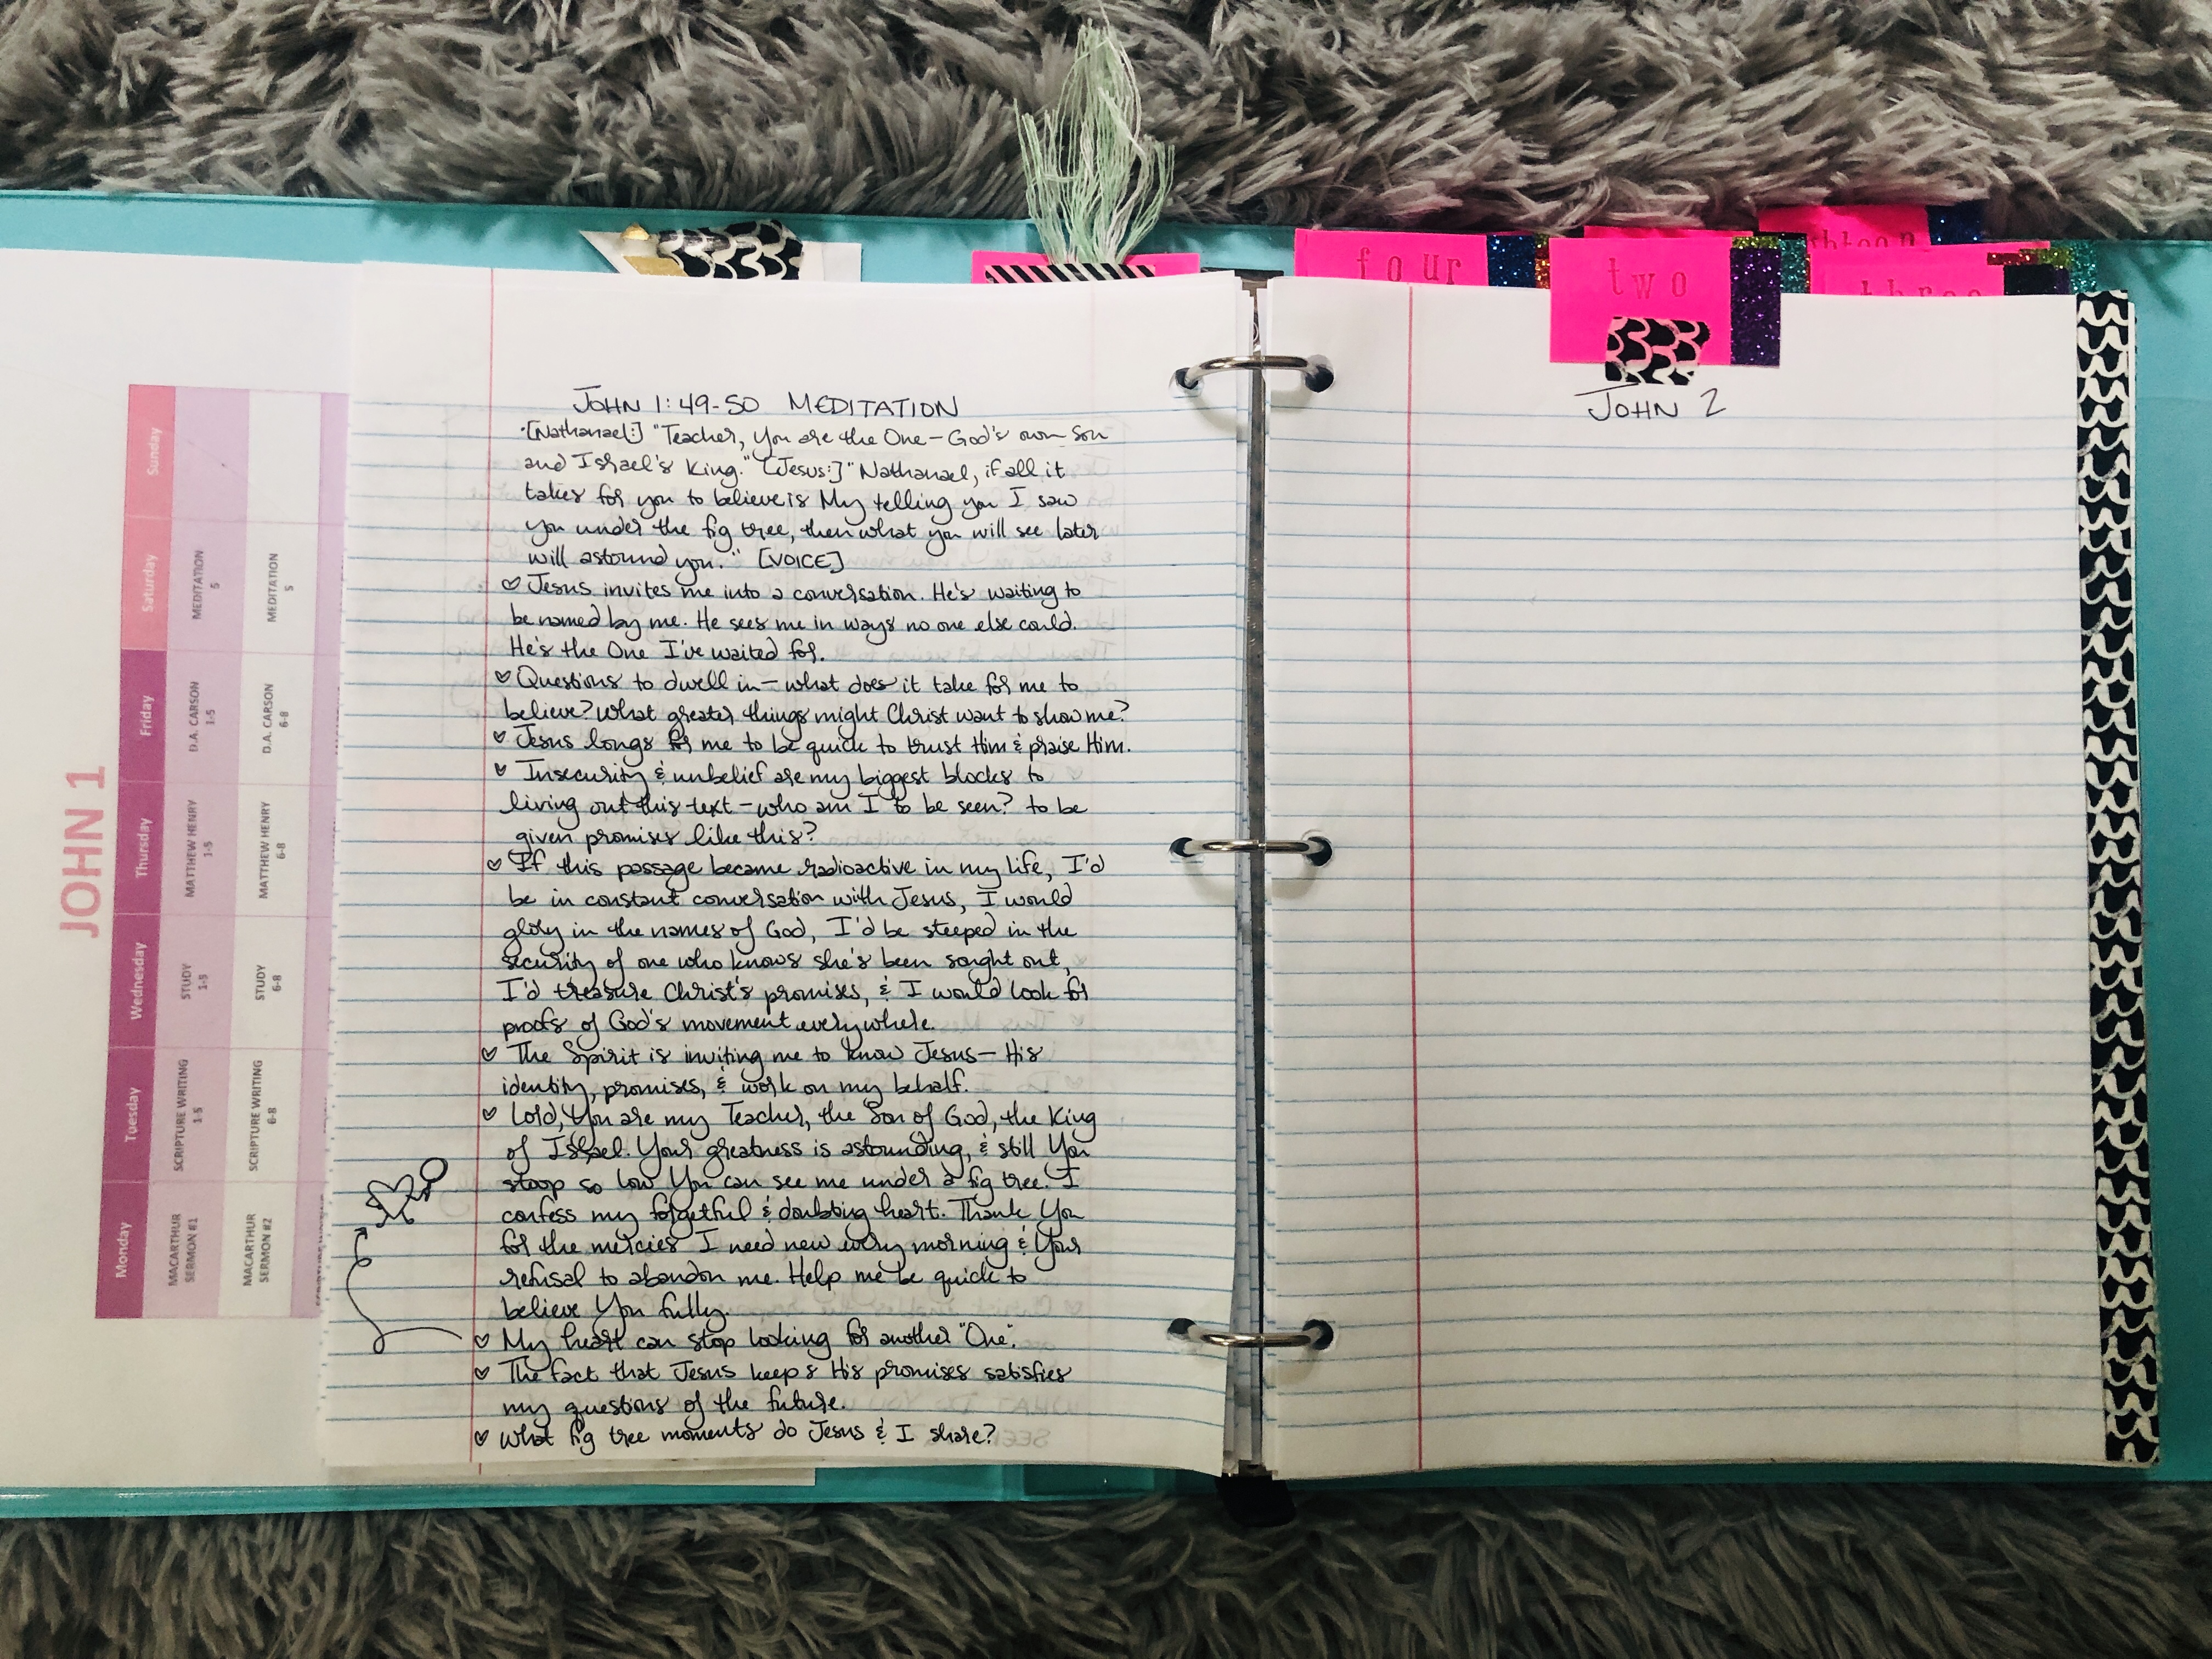 four
two
three
JOHN 1
Sunday
Saturday
MEDITATION
5
MEDITATION
5
Friday
D.A. CARSON
1-5
D.A. CARSON
6-8
Thursday
MATTHEW HENRY
1-5
MATTHEW HENRY
6-8
Wednesday
STUDY
1-5
STUDY
6-8
Tuesday
SCRIPTURE WRITING
1-5
SCRIPTURE WRITING
6-8
Monday
MACARTHUR
SERMON #1
MACARTHUR
SERMON #2
JOHN 1:49-50 MEDITATION
·[Nathanael:] "Teacher, You are the One—God's own Son
and Israel's King." [Jesus:] "Nathanael, if all it
takes for you to believe is My telling you I saw
you under the fig tree, then what you will see later
will astound you." [VOICE]
♡ Jesus invites me into a conversation. He's waiting to
be named by me. He sees me in ways no one else could.
He's the One I've waited for.
♡ Questions to dwell in—what does it take for me to
believe? What greater things might Christ want to show me?
♡ Jesus longs for me to be quick to trust Him & praise Him.
♡ Insecurity & unbelief are my biggest blocks to
living out this text—who am I to be seen? to be
given promises like this?
♡ If this passage became radioactive in my life, I'd
be in constant conversation with Jesus, I would
glory in the names of God, I'd be steeped in the
security of one who knows she's been sought out,
I'd treasure Christ's promises, & I would look for
proofs of God's movement everywhere.
♡ The Spirit is inviting me to know Jesus—His
identity, promises, & work on my behalf.
♡ Lord, You are my Teacher, the Son of God, the King
of Israel. Your greatness is astounding, & still You
stoop so low You can see me under a fig tree. I
confess my forgetful & doubting heart. Thank You
for the mercies I need new every morning & Your
refusal to abandon me. Help me be quick to
believe You fully.
♡ My heart can stop looking for another "One".
♡ The fact that Jesus keeps His promises satisfies
my questions of the future.
♡ What fig tree moments do Jesus & I share?
JOHN 2